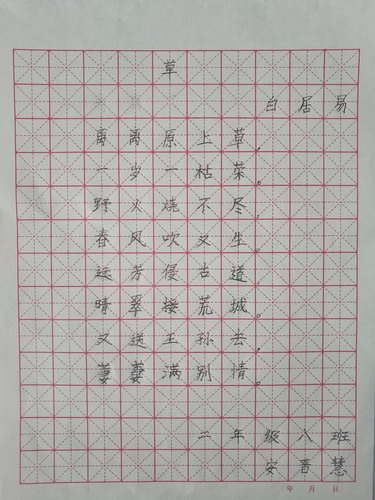 草
白居易
离离原上草，
一岁一枯荣。
野火烧不尽，
春风吹又生。
远芳侵古道，
晴翠接荒城。
又送王孙去，
萋萋满别情。
二年级八班
安晋慧
年 月 日